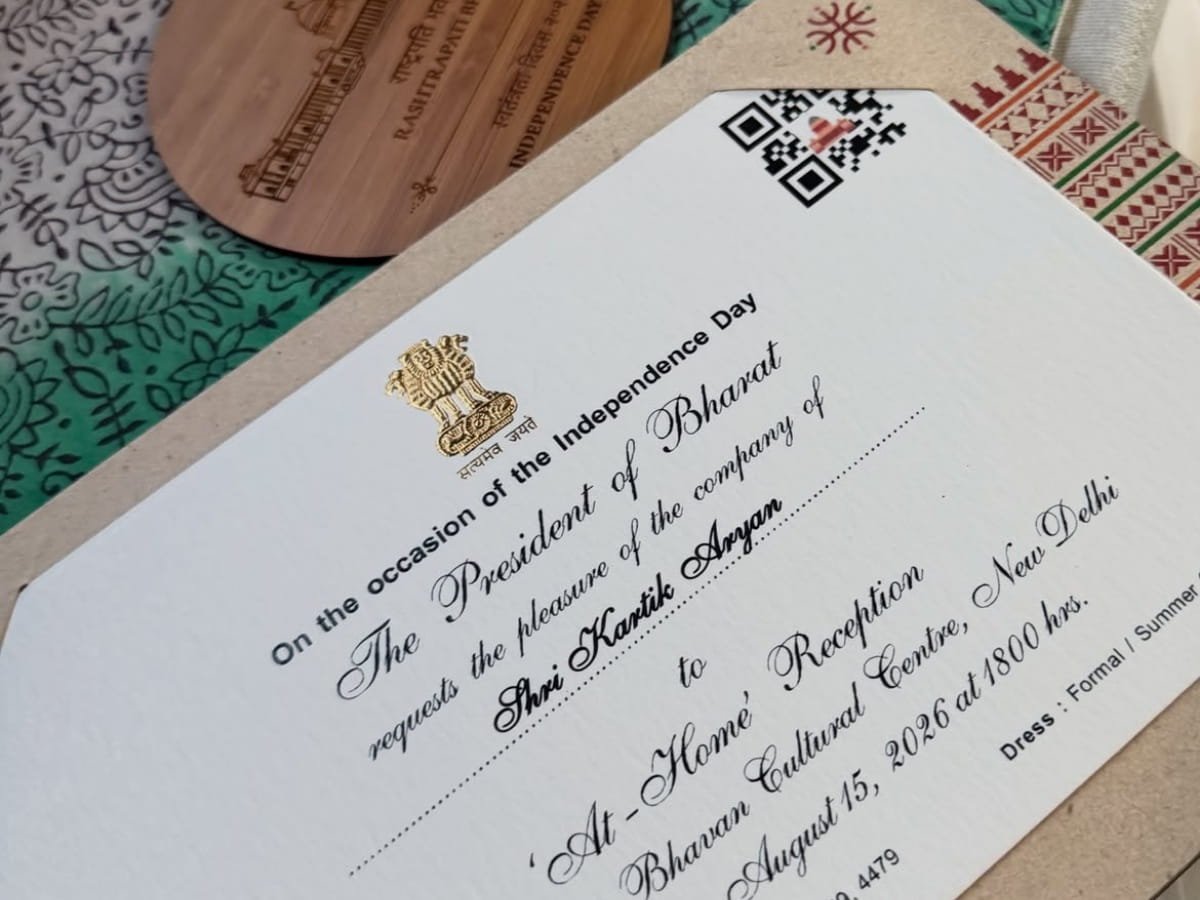 राष्ट्रपति
RASHTRAPATI
स्वतंत्रता दिवस
INDEPENDENCE DAY
सत्यमेव जयते
On the occasion of the Independence Day
The President of Bharat
requests the pleasure of the company of
Shri Kartik Aryan
to
'At-Home' Reception
Bhavan Cultural Centre, New Delhi
August 15, 2026 at 1800 hrs.
Dress : Formal / Summer
4479